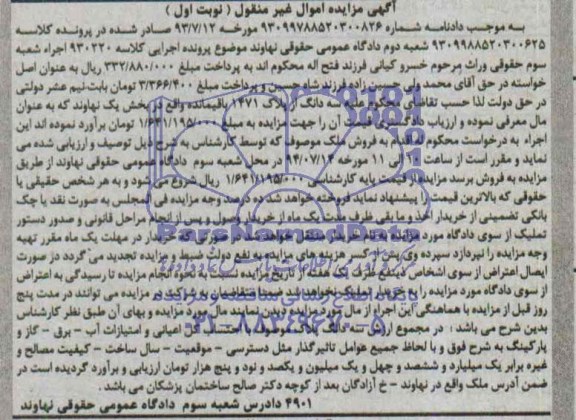 آگهی مزایده اموال غیر منقول ( نوبت اول )
به موجب دادنامه شماره ۹۳۰۹۹۷۸۸۵۲۰۳۰۰۸۲۶ مورخه ۹۳/۷/۱۲ صادر شده در پرونده کلاسه
۹۳۰۹۹۸۸۵۲۰۳۰۰۶۲۵ شعبه دوم دادگاه عمومی حقوقی نهاوند موضوع پرونده اجرایی کلاسه ۹۳۰۲۲۰ اجراء شعبه
سوم حقوقی وراث مرحوم خسرو کیانی فرزند فتح اله محکوم اند به پرداخت مبلغ ۳۳۲/۸۸۰/۰۰۰ ریال به عنوان اصل
خواسته در حق آقای محمد ولی حسن زاده فرزند شاه حسین و پرداخت مبلغ ۳/۳۶۶/۴۰۰ تومان بابت نیم عشر دولتی
در حق دولت لذا حسب تقاضای محکوم علیه سه دانگ از پلاک ۱۴۷۱ باقیمانده واقع در بخش یک نهاوند که به عنوان
مال معرفی نموده و ارزیاب دادگستری قیمت آن را جهت مزایده به مبلغ ۱/۶۴۱/۱۹۵/۰۰۰ تومان برآورد نموده اند این
اجراء به درخواست محکوم له اقدام به فروش ملک موصوف که توسط کارشناس به شرح ذیل توصیف و ارزیابی شده می
نماید و مقرر است از ساعت ۱۰ الی ۱۱ مورخه ۹۴/۰۷/۱۴ در محل شعبه سوم دادگاه عمومی حقوقی نهاوند از طریق
مزایده به فروش برسد مزایده از قیمت پایه کارشناسی ۱/۶۴۱/۱۹۵/۰۰۰ ریال شروع می شود و به هر شخص حقیقی یا
حقوقی که بالاترین قیمت را پیشنهاد نماید فروخته خواهد شد ده درصد وجه مزایده فی المجلس به صورت نقد یا چک
بانکی تضمینی از خریدار اخذ و ما بقی ظرف مدت یک ماه از خریدار وصول و پس از انجام مراحل قانونی و صدور دستور
تملیک از سوی دادگاه مورد مزایده به نام خریدار منتقل خواهد شد در صورتی که خریدار در مهلت یک ماه مقرر بقیه
وجه مزایده را نپردازد سپرده وی پس از کسر هزینه های مزایده به نفع دولت ضبط و مزایده تجدید می گردد در صورت
ایصال اعتراض از سوی اشخاص ذینفع ظرف یک هفته از تاریخ مزایده نسبت به نحوه انجام مزایده تا رسیدگی به اعتراض
از سوی دادگاه مورد مزایده را به خریدار تملیک نخواهد شد ضمنا متقاضیان شرکت در مزایده می توانند در مدت پنج
روز قبل از مزایده با هماهنگی این اجراء از مال مورد مزایده دیدن نمایند مال مورد مزایده و بهای آن طبق نظر کارشناس
بدین شرح می باشد : در مجموع ارزش سه دانگ پلاک موصوف با احتساب کل اعیانی و امتیازات آب - برق - گاز و
پارکینگ به شرح فوق و با لحاظ جمیع عوامل تاثیرگذار مثل دسترسی - موقعیت - سال ساخت - کیفیت مصالح و
غیره برابر یک میلیارد و ششصد و چهل و یک میلیون و یکصد و نود و پنج هزار تومان ارزیابی و برآورد گردیده است در
ضمن آدرس ملک واقع در نهاوند - خ آزادگان بعد از کوچه دکتر صالح ساختمان پزشکان می باشد .
۴۹۰۱ دادرس شعبه سوم دادگاه عمومی حقوقی نهاوند
ParsNamadData
پایگاه اطلاع رسانی مناقصه و مزایده